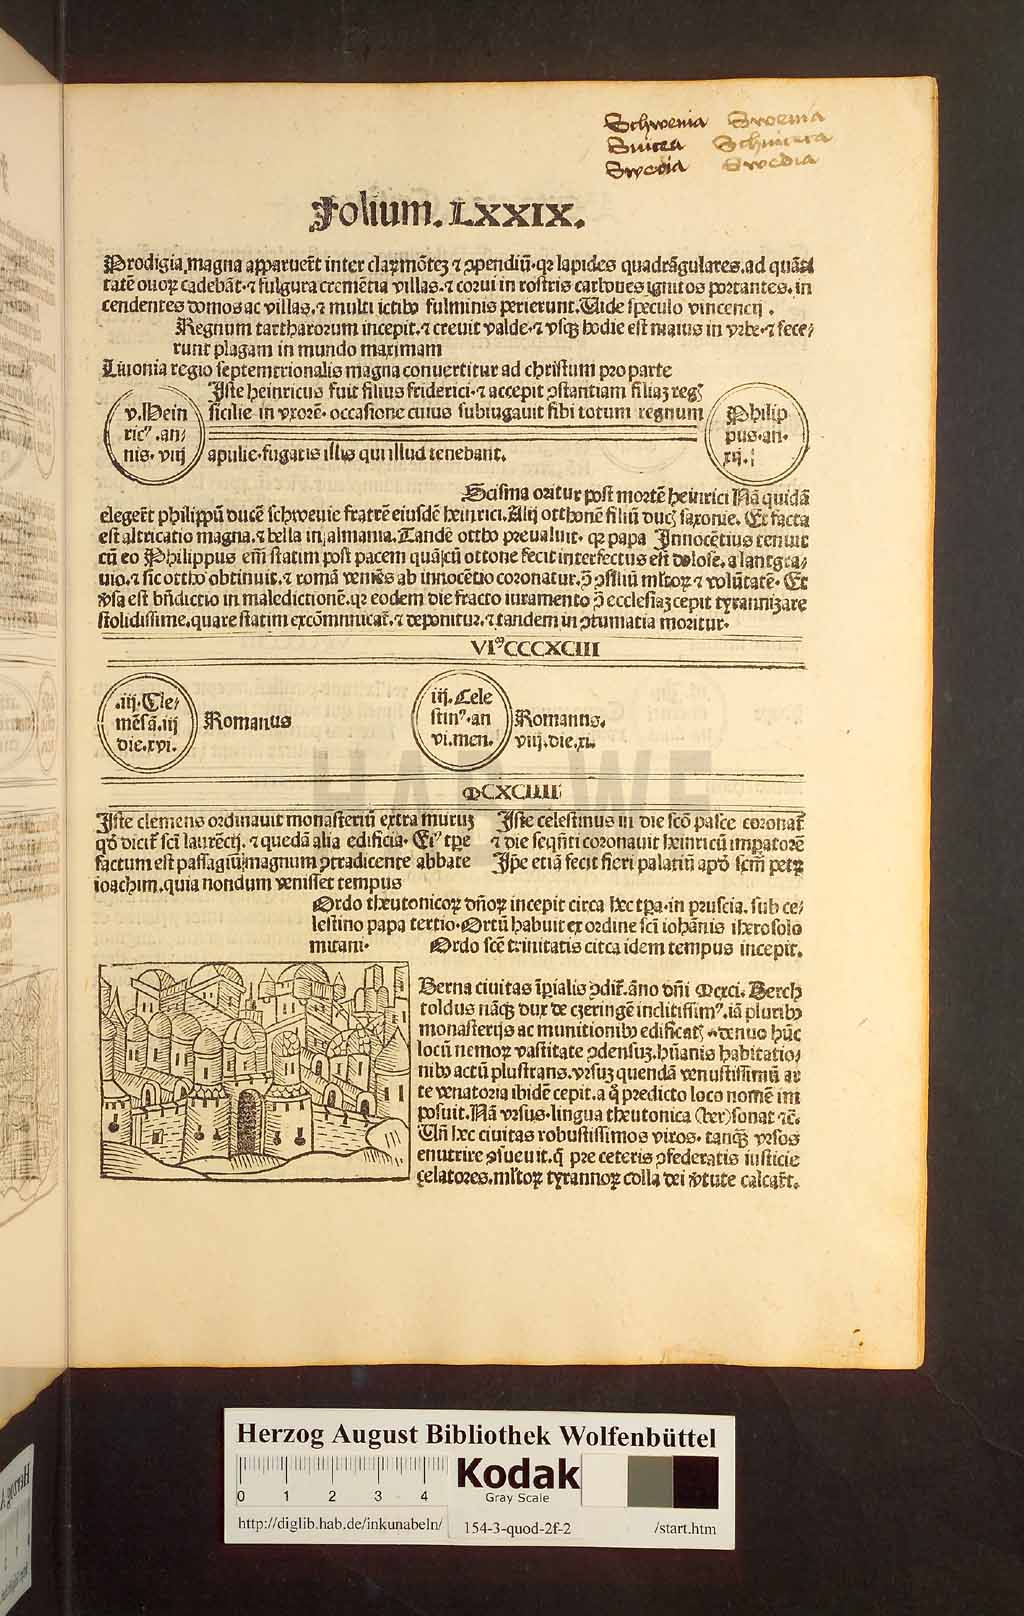 Schwenia Swenia
Suicea Schuicera
Swedia Swedia
Folium. LXXIX.
Prodigia magna apparuer̃t inter claꝝmõteꝫ ⁊ ꝓpendiũ. qꝛ lapides quadrãgulares. ad quãti
tatẽ ouoꝝ cadebãt. ⁊ fulgura cremẽtia villas. ⁊ corui in rostris carbones ignitos portantes. in
cendentes domos ac villas. ⁊ multi ictibꝰ fulminis perierunt. Uide speculo vincencij.
Regnum tartharorum incepit. ⁊ creuit valde. ⁊ vsqꝫ hodie est maius in vrbe. ⁊ fece⸗
runt plagam in mundo maximam
Liuonia regio septemtrionalis magna conuertitur ad christum pro parte
Iste heinricus fuit filius friderici. ⁊ accepit ꝯstantiam filiaꝫ reg̃
v. Hein
ricꝰ. an⸗
nis. viij
sicilie in vxorẽ. occasione cuius subiugauit sibi totum regnum
Philip
pus. an.
xij.
apulie. fugatis illis qui illud tenebant.
Scisma oritur post mortẽ heinrici Nã quidã
eleger̃t philippũ ducẽ schweuie fratrẽ eiusdẽ heinrici. Alij otthonẽ filiũ duc̃ saxonie. Et facta
est altricatio magna. ⁊ bella in almania. Tandẽ ottho preualuit. qꝛ papa Innocẽtius tenuit
cũ eo Philippus em̃ statim post pacem quã cũ ottone fecit interfectus est dolose. a lantgra⸗
uio. ⁊ sic ottho obtinuit. ⁊ romã veniẽs ab innocẽtio coronatur. ꝯ̃ ꝯsiliũ ml̃toꝝ ⁊ volũtatẽ. Et
v̾sa est bñdictio in maledictionẽ. qꝛ eodem die fracto iuramento ꝯ̃ ecclesiaꝫ cepit tyrannizare
stolidissime. quare statim excõmnicat̃. ⁊ deponitur. ⁊ tandem in ꝯtumatia moritur.
VIᵐCCCXCIII
.iij. Cle⸗
mẽs ã. iij
die. xvi.
Romanus
iij. Cele
stinꝰ. an
vi. men.
Romanns.
viij. die. xi.
MCXCIIII
Iste clemens ordinauit monasteriũ extra muruꝫ
qđ dicit̃ sc̃i laurẽcij. ⁊ quedã alia edificia. Eiꝰ tꝑe
factum est passagiũ magnum ꝯtradicente abbate
ioachim. quia nondum venisset tempus
Iste celestinus in die sc̃o pasce coronat̃
⁊ die seqñti coronauit heinricũ imꝑatorẽ
Ip̃e etiã fecit fieri palatiũ apđ sc̃m petꝝ
Ordo theutonicoꝝ dñoꝝ incepit circa hec tꝑa. in pruscia. sub ce⸗
lestino papa tertio. Ortũ habuit ex ordine sc̃i iohãnis iherosolo
mitani. Ordo sc̃e trinitatis circa idem tempus incepit.
Berna ciuitas ĩꝑialis ꝯdit̃. ãno dñi Mcxci. Berch
toldus nãqꝫ dux de czeringẽ inclitissimꝰ. iã pluribꝰ
monasterijs ac munitionibꝰ edificat̃ denuo hũc
locũ nemoꝝ vastitate ꝯdensuꝫ. hũanis habitatio⸗
nibꝰ actũ plustrans. vrsuꝫ quendã venustissimũ ar
te venatoria ibidẽ cepit. a q̃ predicto loco nomẽ im
posuit. Nã vrsus. lingua theutonica (ber) sonat ⁊c̃.
Uñ hec ciuitas robustissimos viros. tanqꝫ vrsos
enutrire ꝯsueuit. q̃ pre ceteris ꝯfederatis iusticie
celatores. ml̃toꝝ tyrannoꝝ colla dei v̾tute calcar̃t.
Herzog August Bibliothek Wolfenbüttel
0 1 2 3 4
Kodak
Gray Scale
http://diglib.hab.de/inkunabeln/ 154-3-quod-2f-2 /start.htm
HAB WF